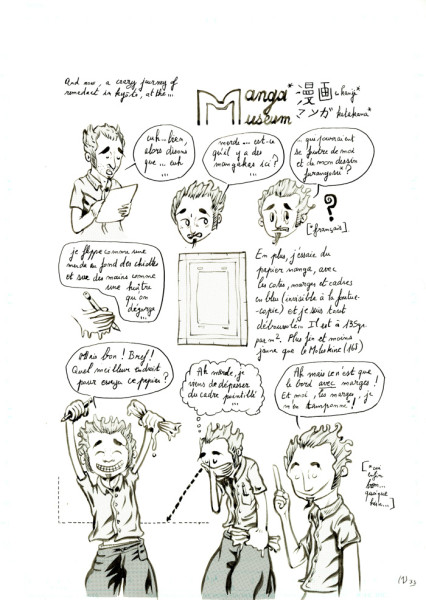 And now, a crazy journey of
remedact in Kyôto, at the...
Manga
Museum
漫画 kanji
マンガ katakana
euh... bien
alors disons
que ... euh
...
merde ... est-ce
qu'il y a des
mangakas ici?
qui pourraient
se foutre de moi
et de mon dessin
?
?
[français]
je flippe comme une
merde au fond des chiottes
et sue des mains comme
une huître
qu'on
dégorge
...
En plus, j'essaie du
papier manga, avec
les cotes, marges et cadres
en bleu (invisible à la photo-
copie) et je suis tout
déboussolé... Il est à 135gr
par m². Plus fin et moins
jaune que le Moleskine (165)
Mais bon! Bref!
Quel meilleur endroit
pour essayer ce papier?
Ah merde, je
viens de dépasser
du cadre pointillé
...
Ah mais ce n'est que
le bord avec marges!
Et moi, les marges, je
m'en tamponne!
[*oui
enfin
bon...
quoique
bien...]